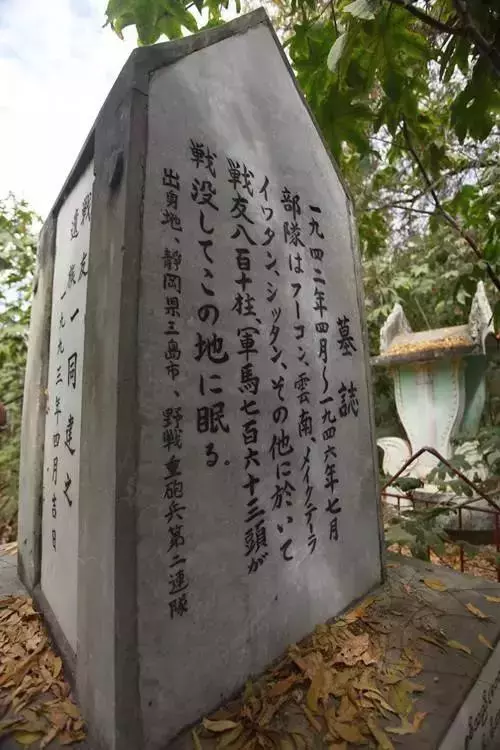 墓誌
一九四二年四月～一九四六年七月
部隊はフーコン、雲南、メイクテーラ
イワタン、シッタン、その他に於いて
戦友八百十柱、軍馬七百六十三頭が
戦没してこの地に眠る。
出身地、静岡県三島市、野戦重砲兵第二連隊
戦友
遺族 一同建之
一九九三年四月吉日